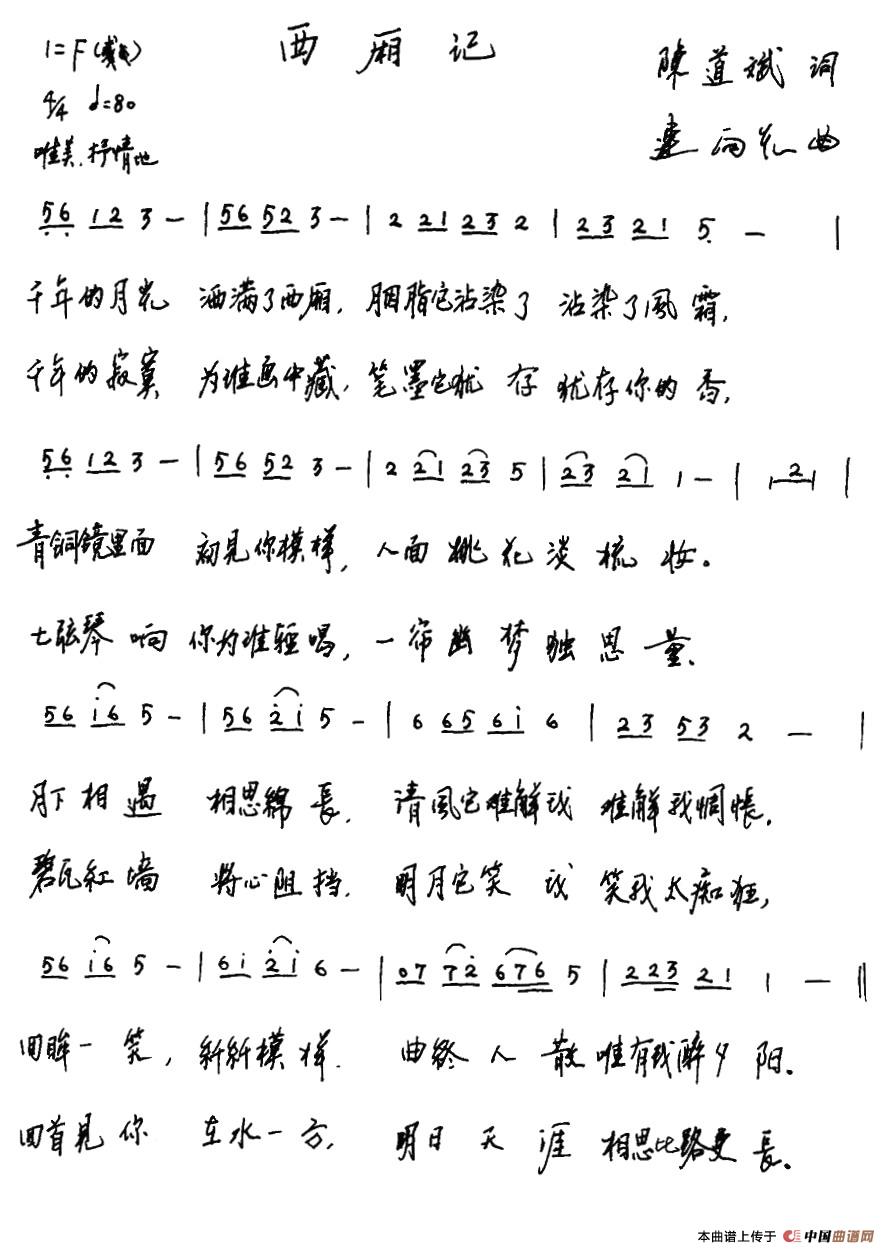 西厢记
1=F
4/4 ♩=80
唯美.抒情地
陳道斌 词
雨花 曲
5̣6̣ 12 3 - | 56 52 3 - | 2 21 23 2 | 23 21 5̣ - |
千年的月光 洒满了西厢, 胭脂它沾染了 沾染了風霜,
千年的寂寞 为谁画中藏, 笔墨它犹存 犹存你的香,
5̣6̣ 12 3 - | 56 52 3 - | 2 21 23 5 | 23 21 1 - | 2 |
青铜鏡里面 初見你模样, 人面桃花淡梳妆。
七弦琴响 你为谁轻唱, 一帘幽梦独思量.
56 i6 5 - | 56 2̇i 5 - | 6 65 6i 6 | 23 53 2 - |
月下相遇 相思綿長. 清風它难解我 难解我惆悵.
碧瓦紅墙 将心阻挡. 明月它笑我 笑我太痴狂,
56 i6 5 - | 6i 2̇i 6 - | 07 72̇ 676 5 | 223 21 1 - ‖
回眸一笑, 新新模样. 曲終人散唯有我醉夕阳。
回首見你 在水一方, 明日天涯 相思比路更長。
本曲谱上传于 中国曲谱网